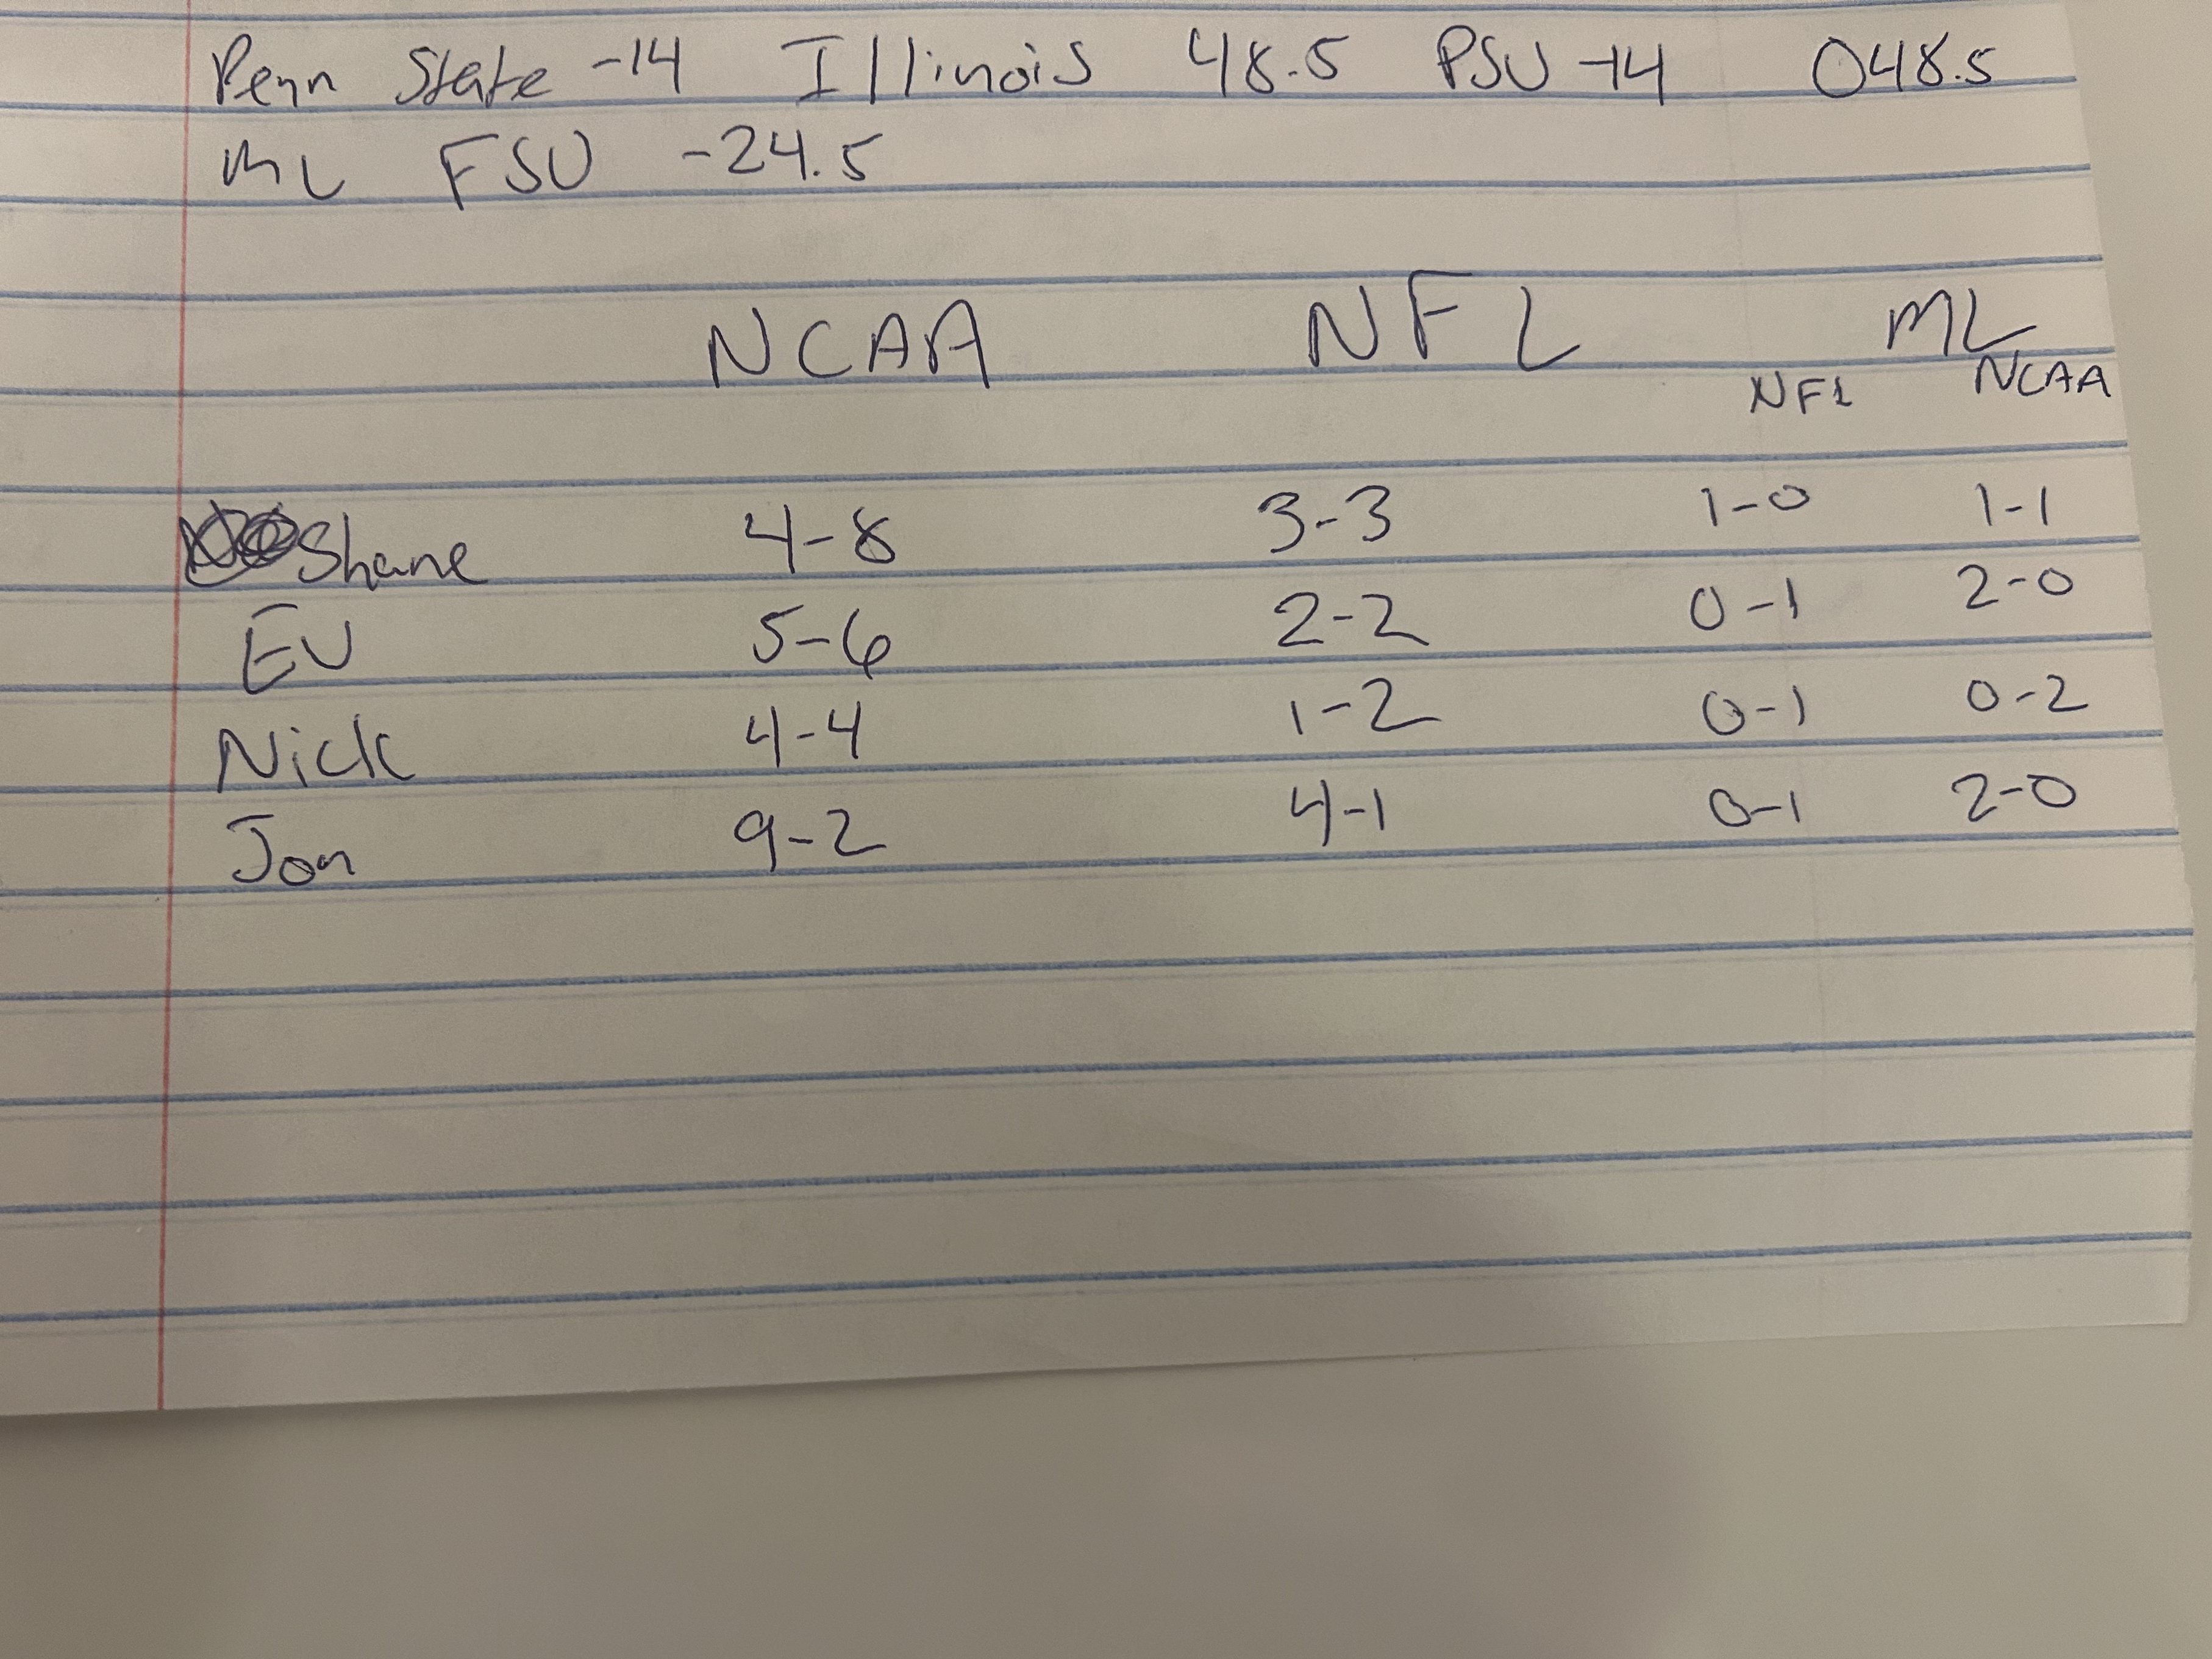 Penn State -14 Illinois 48.5 PSU -14 O48.5
ML FSU -24.5
NCAA NFL ML
NFL NCAA
Shane 4-8 3-3 1-0 1-1
EV 5-6 2-2 0-1 2-0
Nick 4-4 1-2 0-1 0-2
Jon 9-2 4-1 0-1 2-0